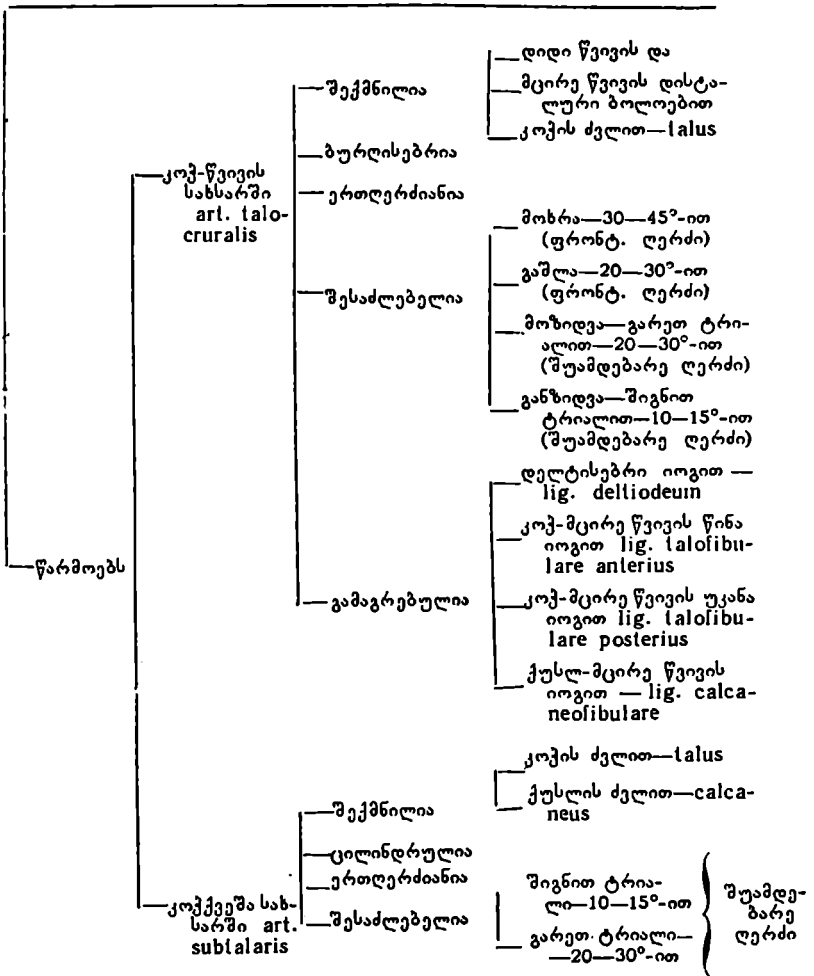 წარმოებს
კოჭ-წვივის
სახსარში
art. talo-
cruralis
შექმნილია
დიდი წვივის და
მცირე წვივის დისტა-
ლური ბოლოებით
კოჭის ძვლით—talus
ბურღისებრია
ერთღერძიანია
შესაძლებელია
მოხრა—30—45°-ით
(ფრონტ. ღერძი)
გაშლა—20—30°-ით
(ფრონტ. ღერძი)
მოზიდვა—გარეთ ტრი-
ალით—20—30°-ით
(შუამდებარე ღერძი)
განზიდვა—შიგნით
ტრიალით—10—15°-ით
(შუამდებარე ღერძი)
გამაგრებულია
დელტისებრი იოგით —
lig. deltiodeum
კოჭ-მცირე წვივის წინა
იოგით lig. talofibu-
lare anterius
კოჭ-მცირე წვივის უკანა
იოგით lig. talofibu-
lare posterius
ქუსლ-მცირე წვივის
იოგით — lig. calca-
neofibulare
კოჭქვეშა სახ-
სარში art.
subtalaris
შექმნილია
კოჭის ძვლით—talus
ქუსლის ძვლით—calca-
neus
ცილინდრულია
ერთღერძიანია
შესაძლებელია
შიგნით ტრია-
ლი—10—15°-ით
გარეთ. ტრიალი—
—20—30°-ით
შუამდე-
ბარე
ღერძი